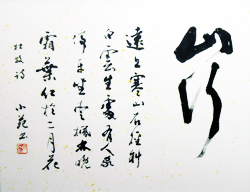 山行
遠上寒山石徑斜
白雲生處有人家
停車坐愛楓林晚
霜葉紅於二月花
杜牧詩